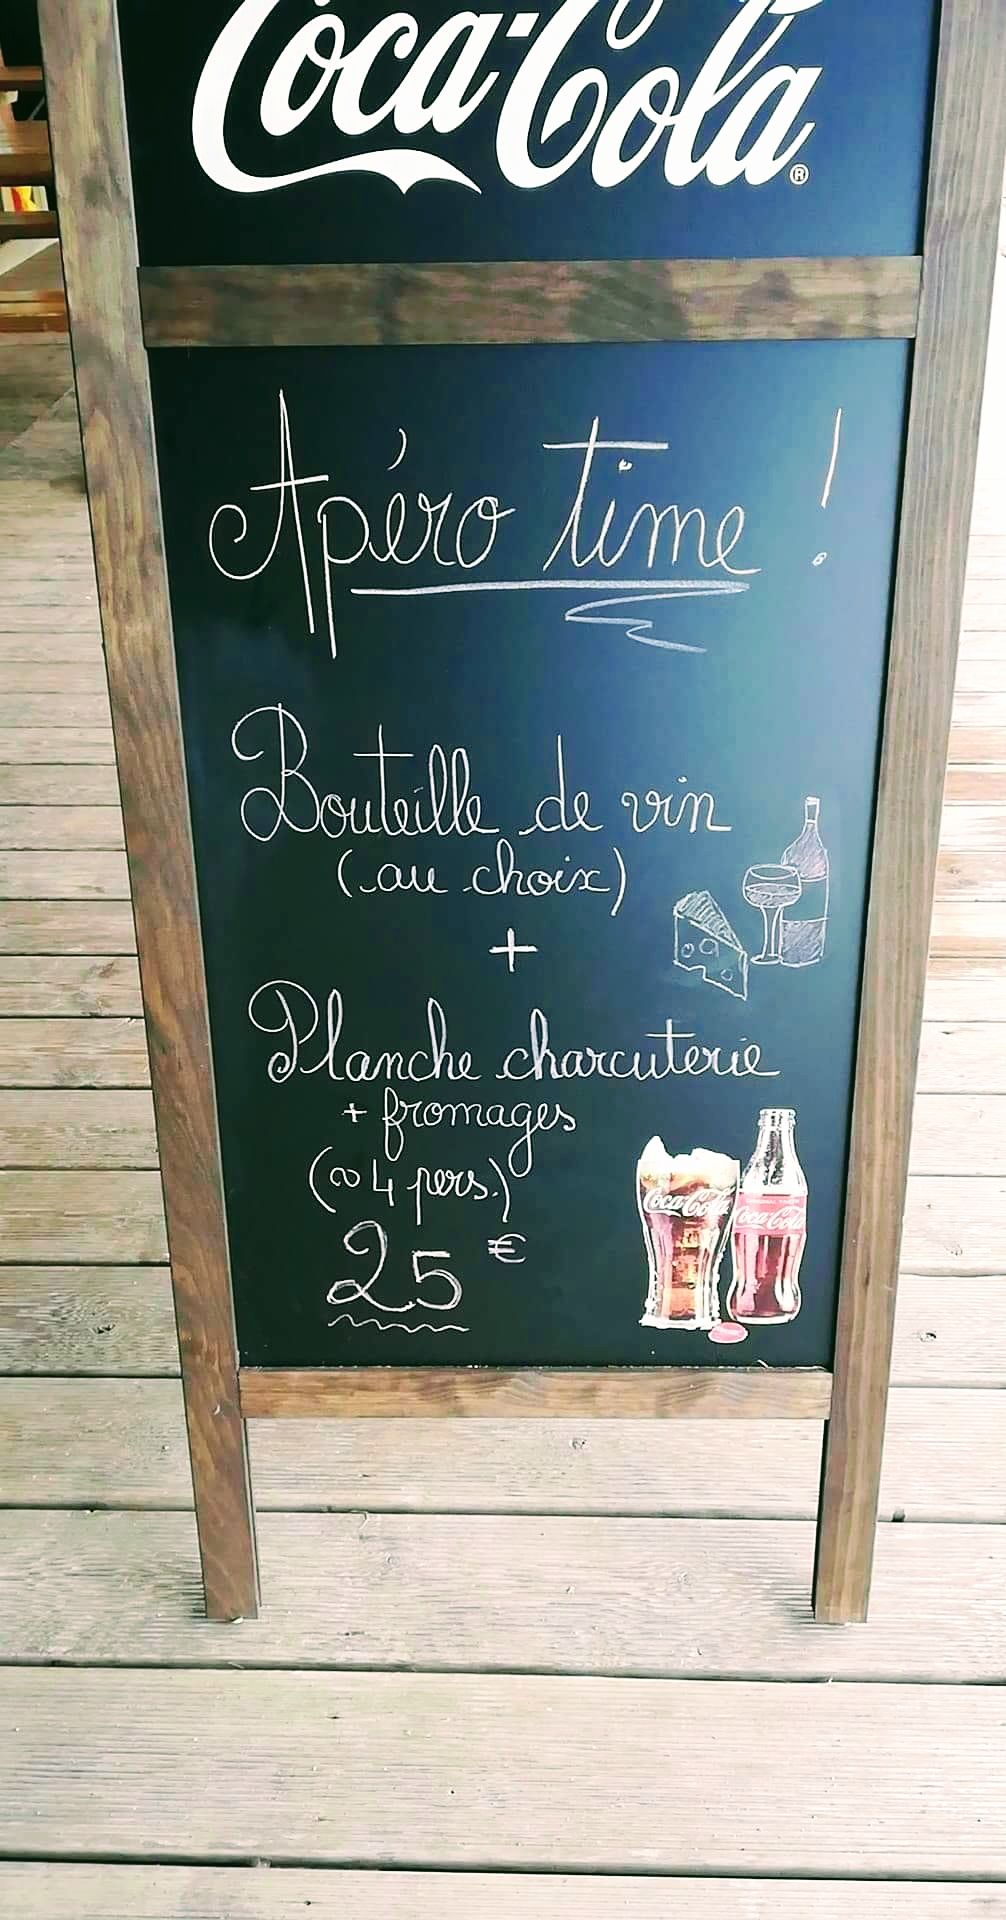 Coca-Cola®
Apéro time !
Bouteille de vin
(au choix)
+
Planche charcuterie
+ fromages
(∞ 4 pers.)
25 €
Coca-Cola
Coca-Cola